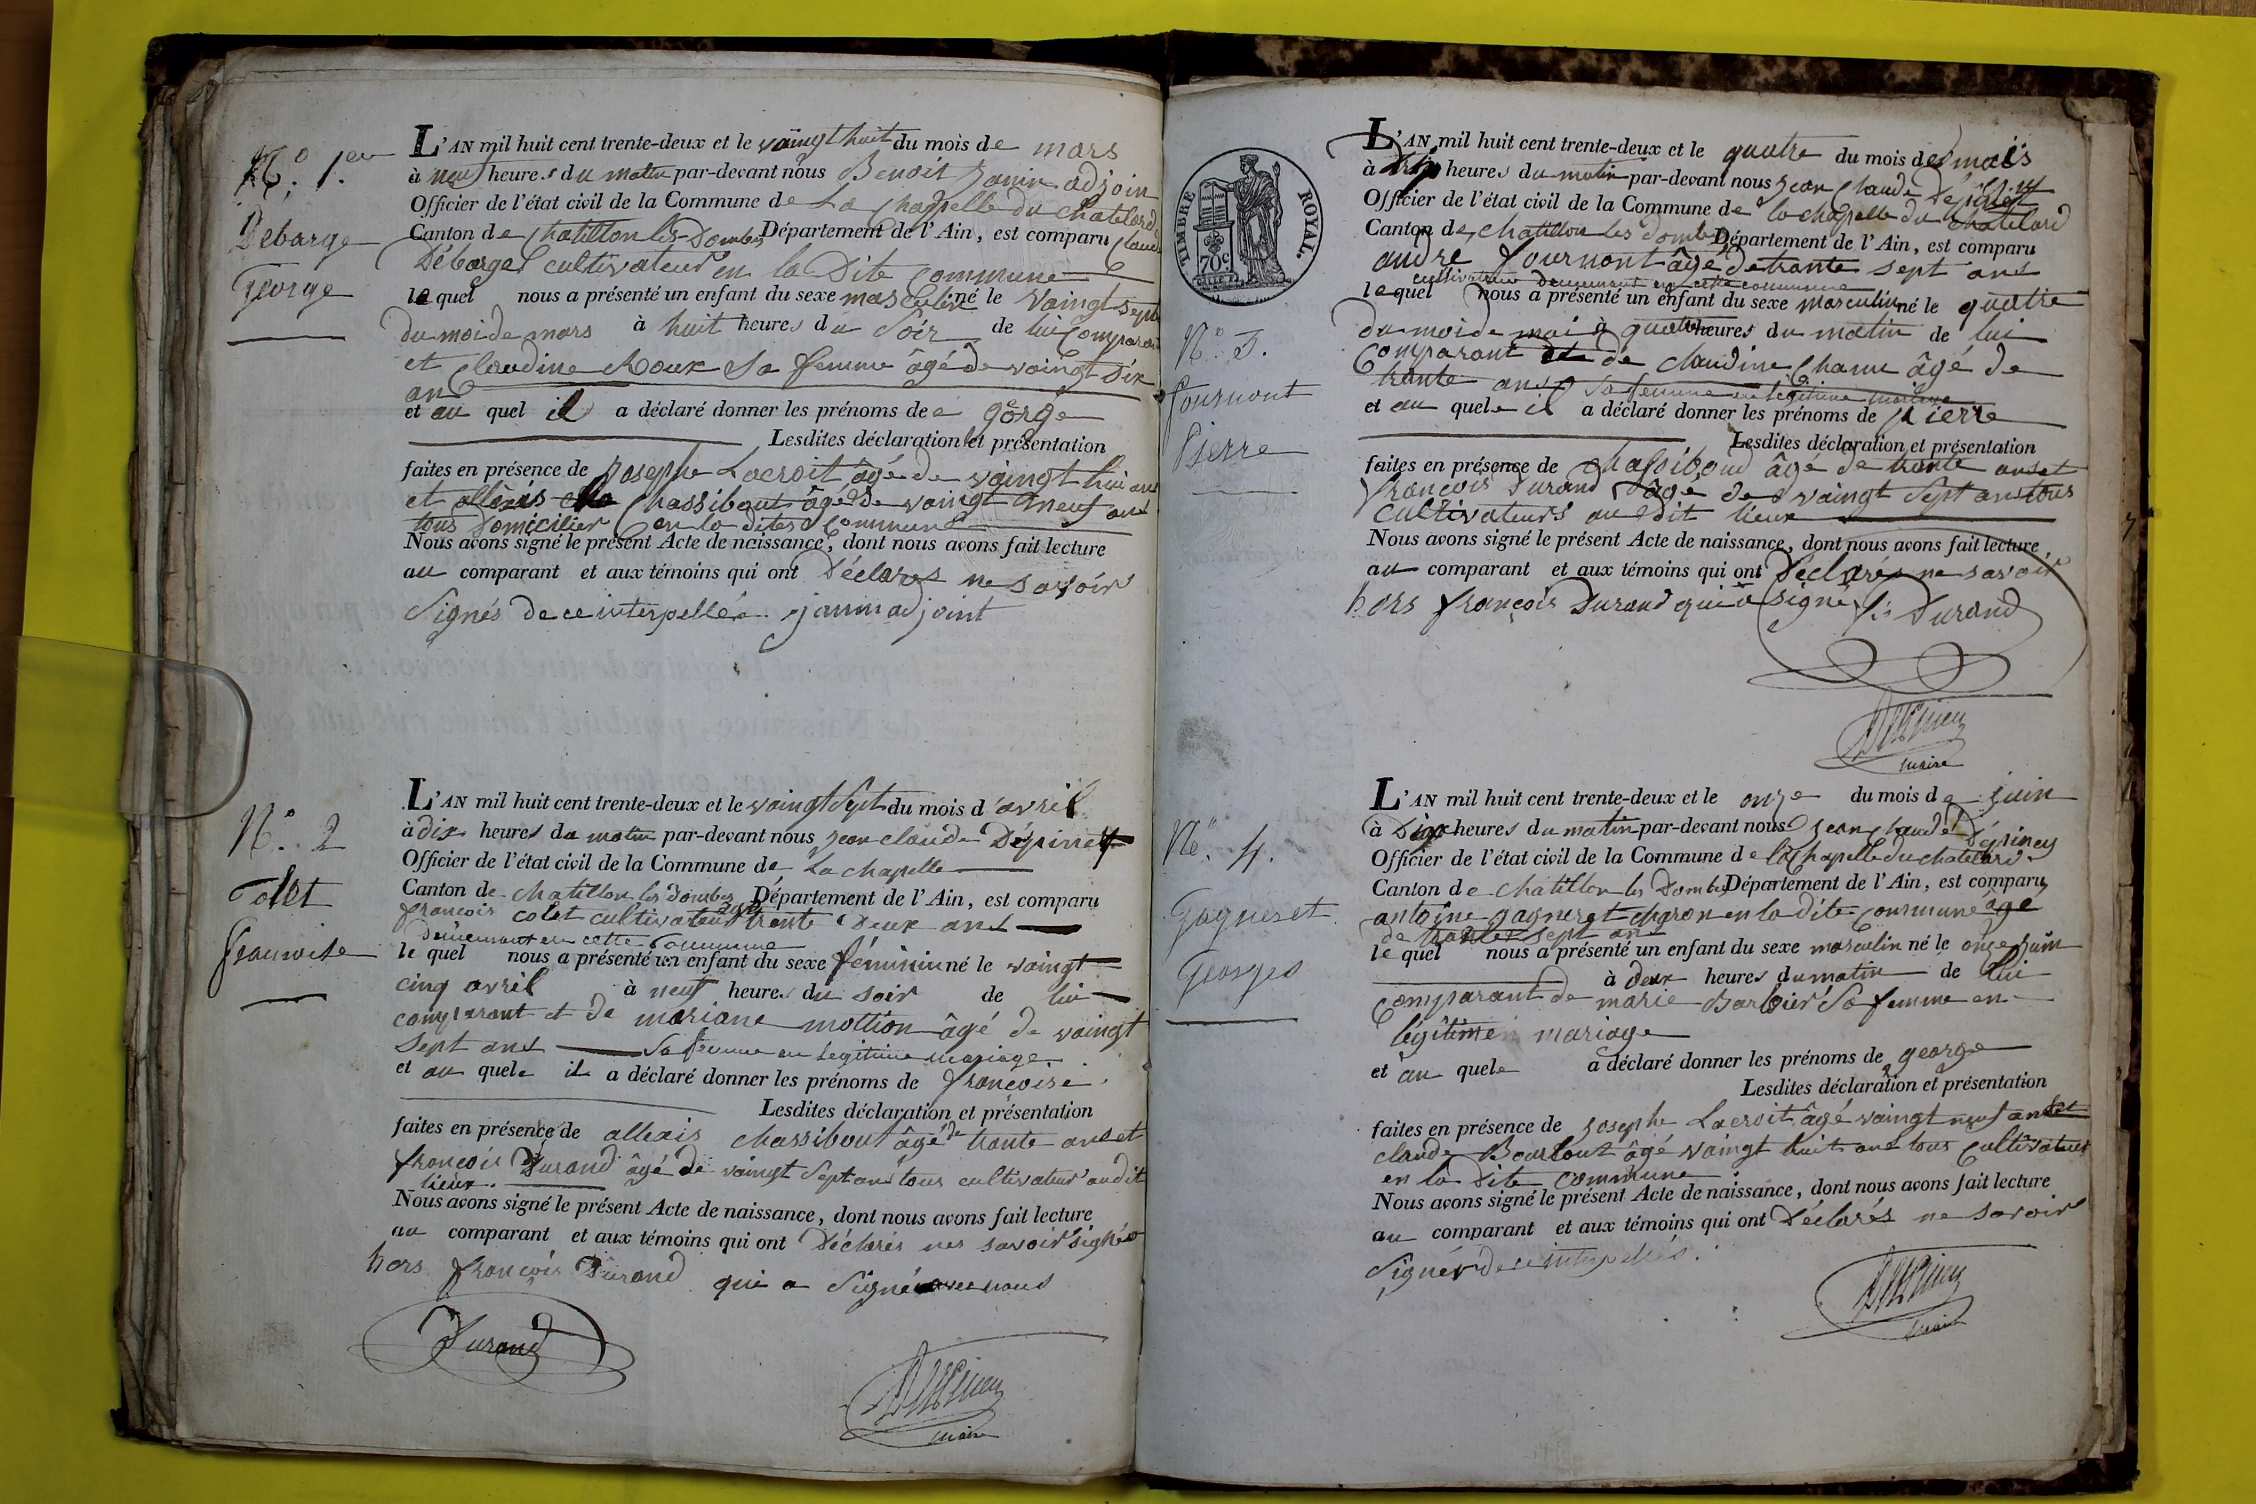 N.o 1.er
Debarge
George
L'AN mil huit cent trente-deux et le vaingt huit du mois de mars
à neuf heures du matin par-devant nous Benoit Janin adjoin
Officier de l'état civil de la Commune de La Chappelle du Chatelard
Canton de Chatillon les Dombes Département de l'Ain, est comparu Claude
Débarge cultivateur en la Dite Commune
le quel nous a présenté un enfant du sexe masculin né le vaingt sept
du moi de mars à huit heures du Soir de lui Comparant
et Claudine Roux Sa femme âgé de vaingt Six
ans
et au quel il a déclaré donner les prénoms de george
Lesdites déclaration et présentation
faites en présence de Josephe Lacroit âgé de vaingt huit ans
et allexis Chassibout âgé de vaingt neuf ans
tous Domicilier en la dites Commune
Nous avons signé le présent Acte de naissance, dont nous avons fait lecture
au comparant et aux témoins qui ont Déclares ne savoir
Signés de ce interpellés. janin adjoint
N.o 2
Colet
Francoise
L'AN mil huit cent trente-deux et le vaingt Sept du mois d'avril
à dix heures du matin par-devant nous jean claude
Officier de l'état civil de la Commune de La chapelle
Canton de chatillon les Dombes Département de l'Ain, est comparu
francois colet cultivateur âgé trente Deux ans
demeurant en cette Commune
le quel nous a présenté un enfant du sexe féminin né le vaingt
cinq avril à neuf heures du soir de lui
comparant et de mariane mottion âgé de vaingt
sept ans Sa femme en legitime mariage
et au quele il a déclaré donner les prénoms de françoise
Lesdites déclaration et présentation
faites en présence de allexis chassibout âgé de trante ans et
françois Durand âgé de vaingt Sept ans tous cultivateur audit
lieux.
Nous avons signé le présent Acte de naissance, dont nous avons fait lecture
au comparant et aux témoins qui ont Déclarés nes savoir signés
hors françois Durand qui a Signé avec nous
Durand
maire
TIMBRE ROYAL.
70c
N.o 3.
fournont
Pierre
L'AN mil huit cent trente-deux et le quatre du mois de mais
à heures du matin par-devant nous jean Claude
Officier de l'état civil de la Commune de la chapelle du Chatelard
Canton de chatillon les Dombes Département de l'Ain, est comparu
andre fournont âgé de trante sept ans
cultivateur demeurant en cette commune
le quel nous a présenté un enfant du sexe masculin né le quatre
du moi de mai à quatre heures du matin de lui
Comparant de claudine Chanu âgé de
trante ans Sa femme en legitime mariage
et au quele il a déclaré donner les prénoms de pierre
Lesdites déclaration et présentation
faites en présence de chassiboud âge de trante ans et
françois Durand âgé de vaingt Sept ans tous
cultivateurs au dit lieux
Nous avons signé le présent Acte de naissance, dont nous avons fait lecture,
au comparant et aux témoins qui ont Déclarés ne savoir
hors françois Durand qui a signé fis Durand
maire
N.o 4.
Gagneret
Georges
L'AN mil huit cent trente-deux et le onze du mois de juin
à Dix heures du matin par-devant nous jean Claude Dépiney
Officier de l'état civil de la Commune de la Chapelle du chatelard
Canton de Chatillon les Dombes Département de l'Ain, est comparu
antoine gagneret charon en la dite Commune âge
de trante sept ans
le quel nous a présenté un enfant du sexe masculin né le onze juin
à deux heures du matin de lui
Comparant de marie Barbier Sa femme en
légitime mariage
et au quele a déclaré donner les prénoms de george
Lesdites déclaration et présentation
faites en présence de josephe Lacroit âgé vaingt neuf ans et
claude Bourlout âgé vaingt huit ans tous Cultivateur
en la Dite commune
Nous avons signé le présent Acte de naissance, dont nous avons fait lecture
au comparant et aux témoins qui ont Déclarés ne savoir
Signér de ce interpellés.